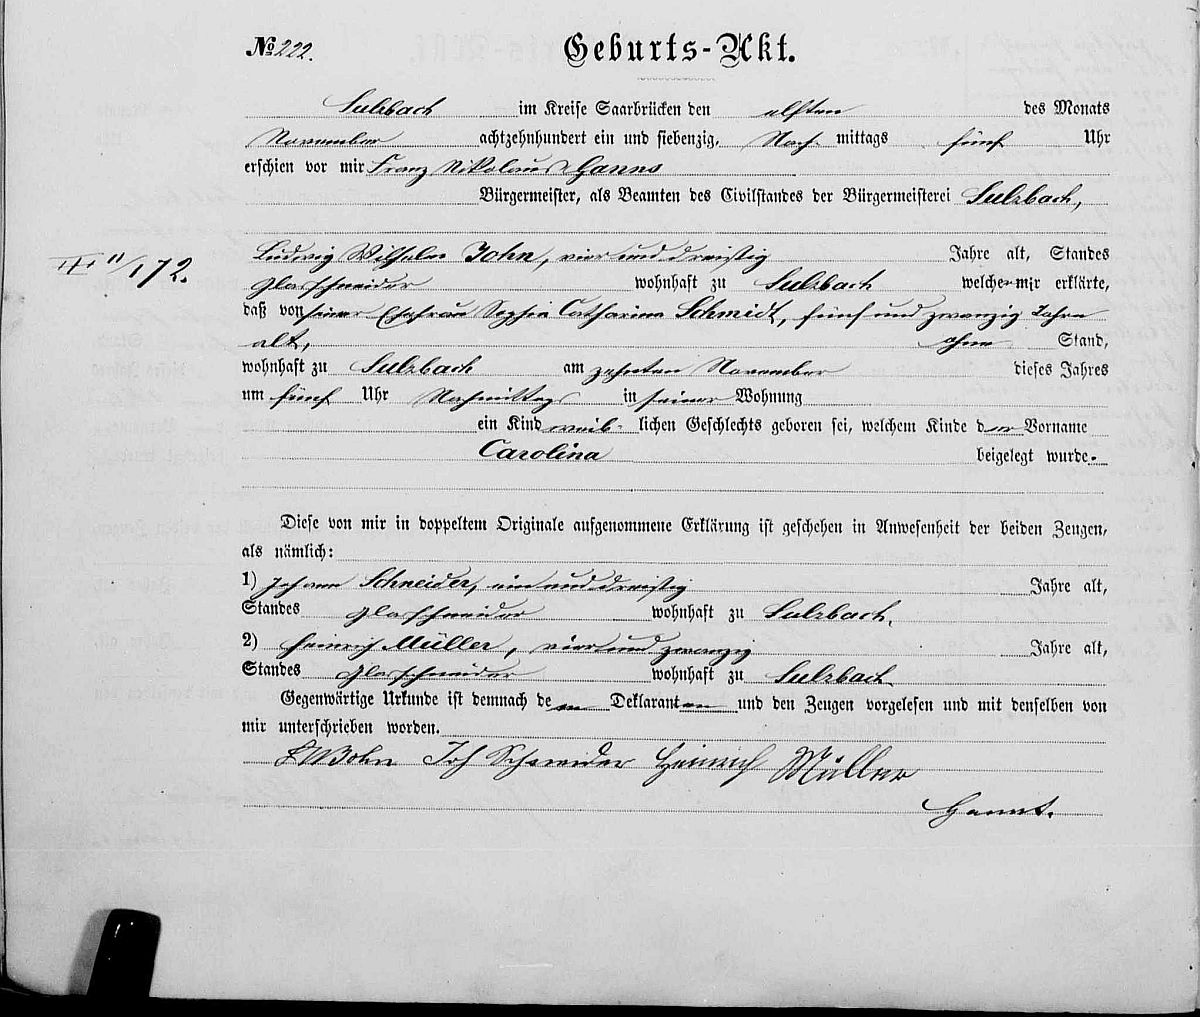 No 222.
Geburts-Akt.
Sulzbach im Kreise Saarbrücken den elften des Monats
November achtzehnhundert ein und siebenzig, Nach mittags fünf Uhr
erschien vor mir Franz Nikolaus Hanns
Bürgermeister, als Beamten des Civilstandes der Bürgermeisterei Sulzbach,
Ludwig Wilhelm John, vier und dreißig Jahre alt, Standes
11/1 72.
Glasschneider wohnhaft zu Sulzbach welcher mir erklärte,
daß von seiner Ehefrau Sophia Catharina Schmidt, fünf und zwanzig Jahre
alt, ohne Stand,
wohnhaft zu Sulzbach am zehnten November dieses Jahres
um fünf Uhr Nachmittags in seiner Wohnung
ein Kind weib- lichen Geschlechts geboren sei, welchem Kinde der Vorname
Carolina beigelegt wurde.
Diese von mir in doppeltem Originale aufgenommene Erklärung ist geschehen in Anwesenheit der beiden Zeugen,
als nämlich:
1) Johann Schneider, ein und dreißig Jahre alt,
Standes Glasschneider wohnhaft zu Sulzbach,
2) Heinrich Müller, vier und zwanzig Jahre alt,
Standes Glasschneider wohnhaft zu Sulzbach
Gegenwärtige Urkunde ist demnach dem Deklaranten und den Zeugen vorgelesen und mit denselben von
mir unterschrieben worden.
Joh Schneider Heinrich Müller